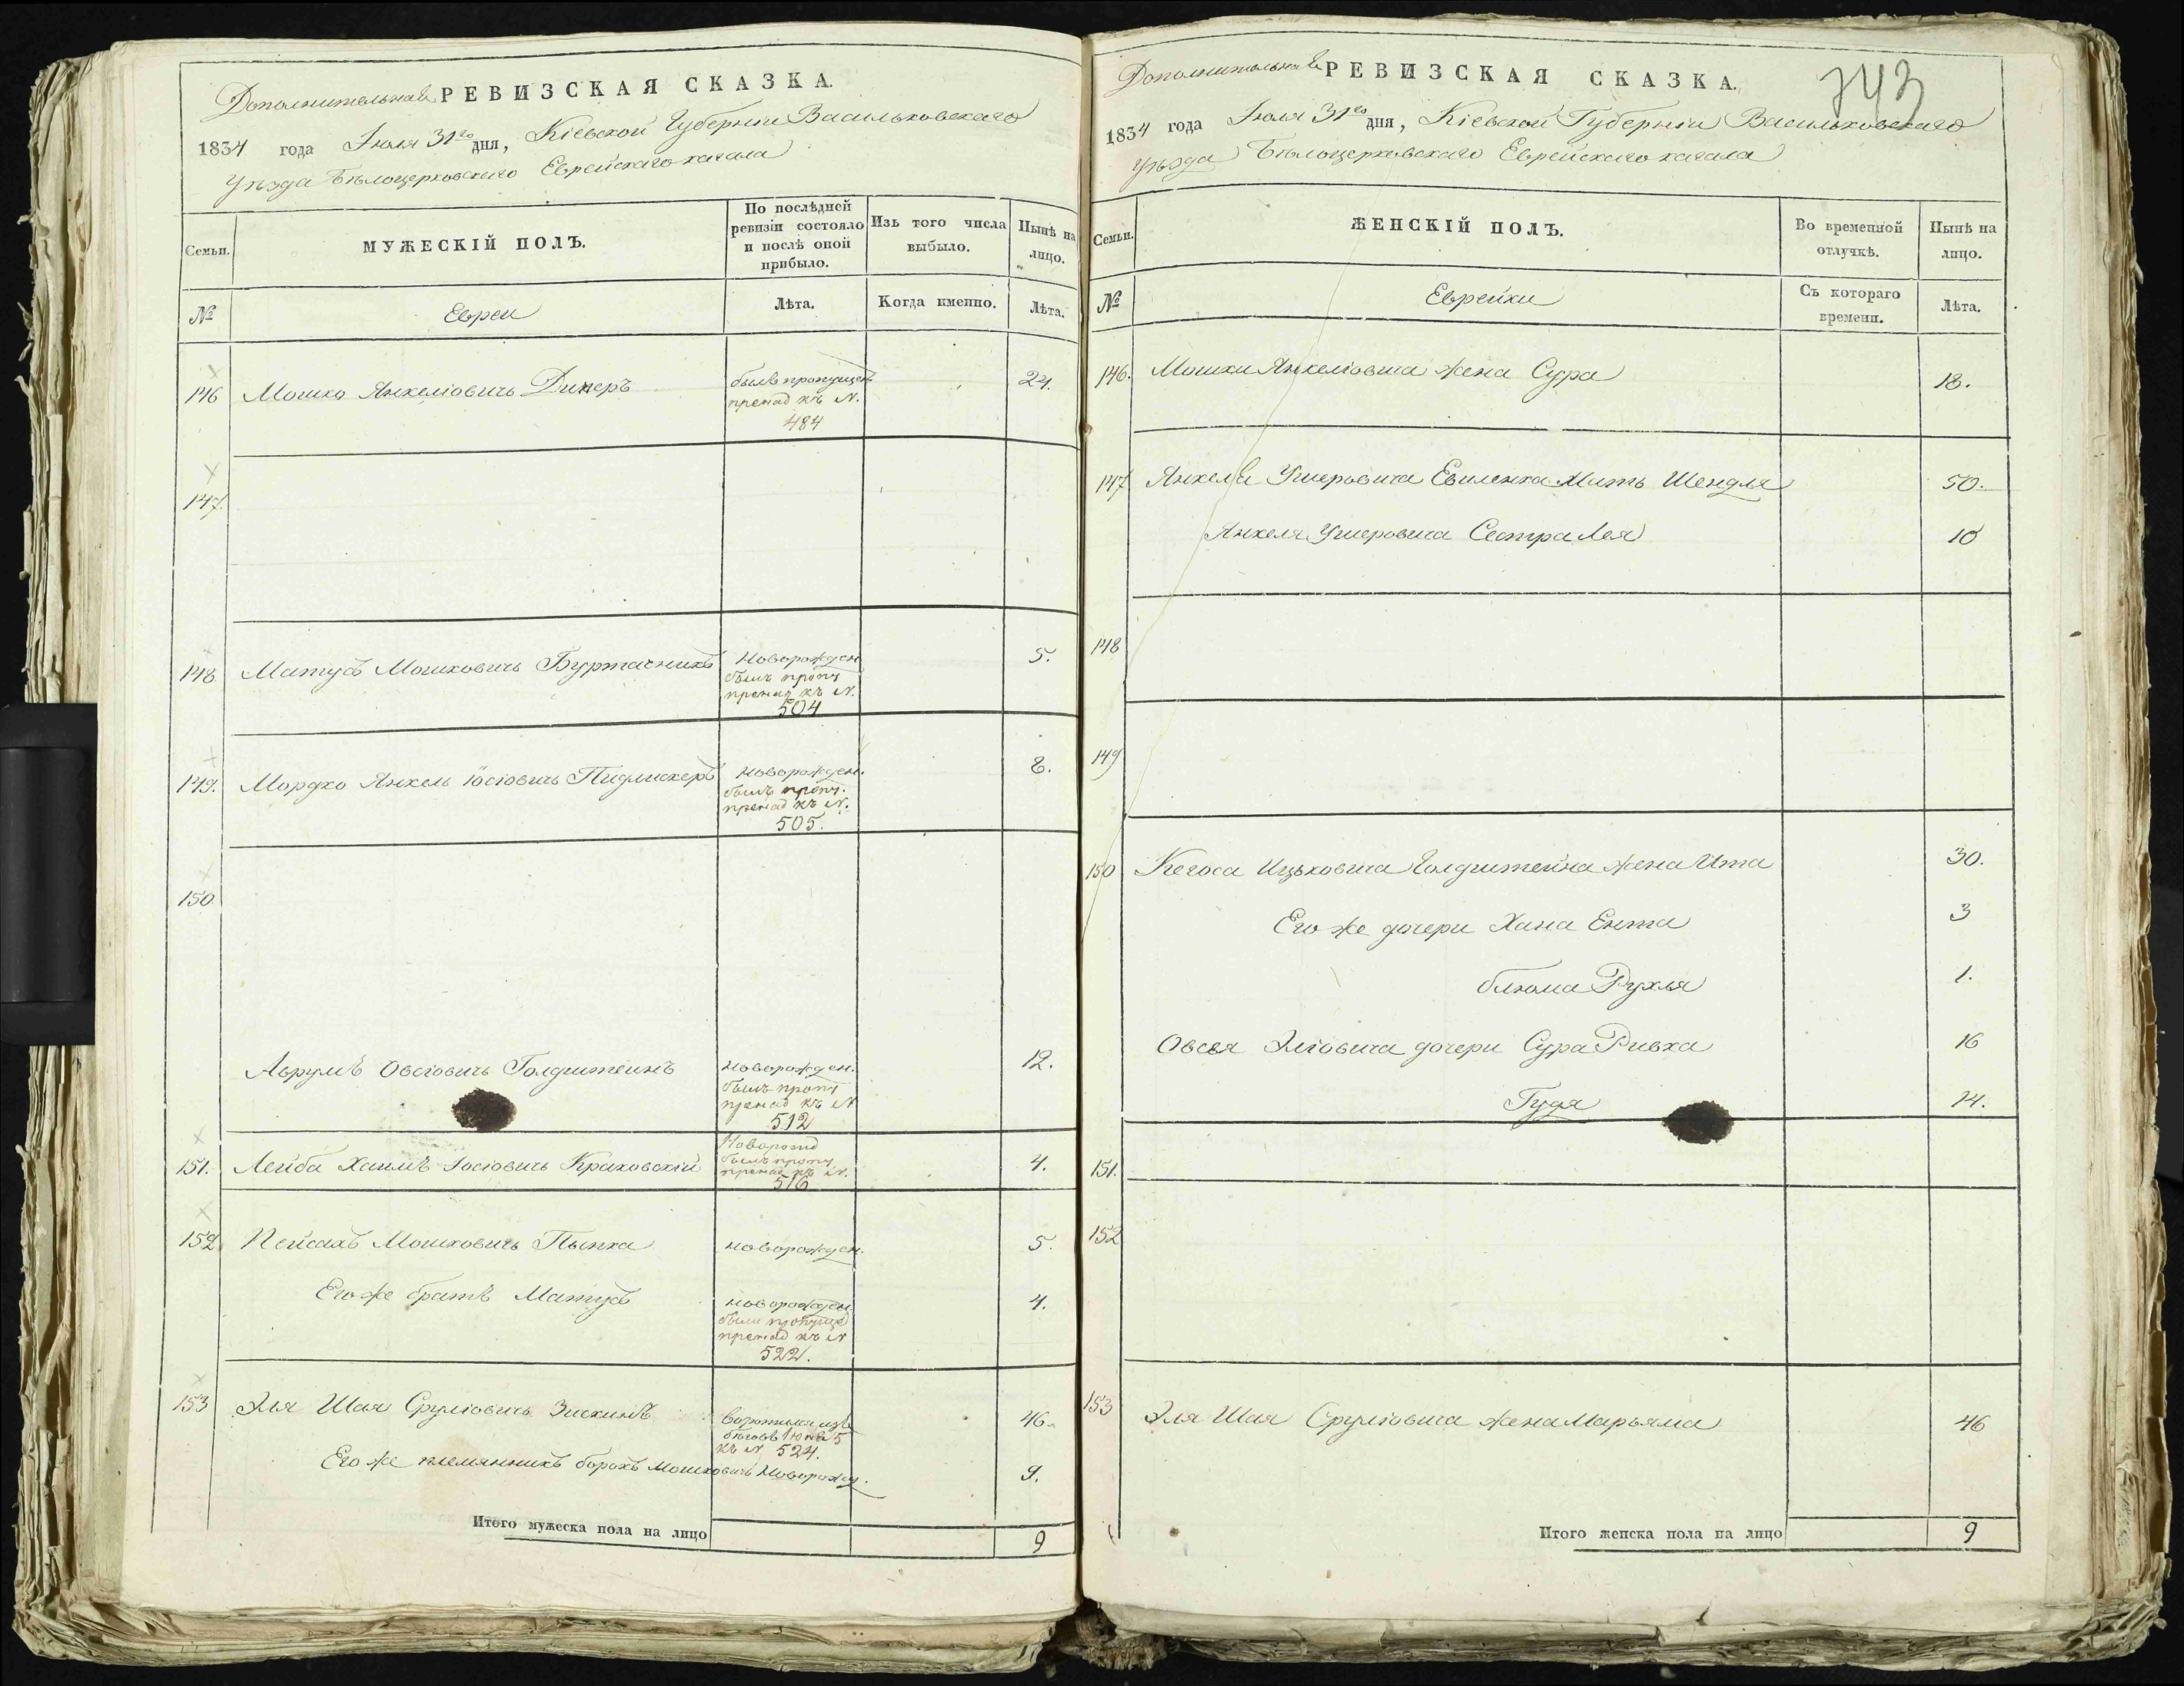 Дополнительная РЕВИЗСКАЯ СКАЗКА.
1834 года Іюля 31го дня, Кіевской Губерніи Васильковскаго
Уѣзда Бѣлоцерковскаго Еврейскаго кагала
Семьи.
МУЖЕСКІЙ ПОЛЪ.
По послѣдней
ревизіи состояло
и послѣ оной
прибыло.
Изъ того числа
выбыло.
Нынѣ на
лицо.
№
Евреи
Лѣта.
Когда именно.
Лѣта.
146 Мошко Янкеліовичъ Динеръ
былъ пропущен
пренад къ N.
484
24.
147.
148 Матусъ Мошковичъ Буртачникъ
Новорожден
былъ проп
пренад къ N.
504
5.
149. Мордко Янкель Іосіовичъ Пидлискеръ
новорожден.
былъ проп.
пренад къ N.
505.
8.
150
Аврумъ Овсіовичъ Голдштеинъ
новорожден.
былъ проп
пренад къ N
512
12.
151. Лейба Хаимъ Іосіовичъ Краковскій
Новорожд
былъ проп
пренад къ N.
516
4.
152 Пейсахъ Мошковичъ Пынка
новорожден.
5.
Его же братъ Матусъ
новорожден
были пропущ
пренад къ N
522.
4.
153 Эля Шая Сруліовичъ Зискинъ
Воротился изъ
бѣговъ 1юня 5
къ N 524.
46.
Его же племянникъ борохъ Мошковичъ Новорожд.
9.
Итого мужеска пола на лицо
9
743
Дополнительная РЕВИЗСКАЯ СКАЗКА.
1834 года Іюля 31го дня, Кіевской Губерніи Васильковскаго
Уѣзда Бѣлоцерковскаго Еврейскаго кагала
Семьи.
ЖЕНСКІЙ ПОЛЪ.
Во временной
отлучкѣ.
Нынѣ на
лицо.
№
Еврейки
Съ котораго
времени.
Лѣта.
146. Мошки Янкеліовича жена Сура 18.
147 Янкеля Ушеровича Евиленка Мать Шендля 50.
Янкеля Ушеровича Сестра Лея 10
148
149
150 Кегоса Ицьковича Голдштейна жена Ита 30.
Его же дочери Хана Ента 3
блюма Рухля 1.
Овсея Эліовича дочери Сура Ривка 16
Гудя 14.
151.
152
153 Эля Шая Сруліовича жена Марьяма 46
Итого женска пола на лицо
9